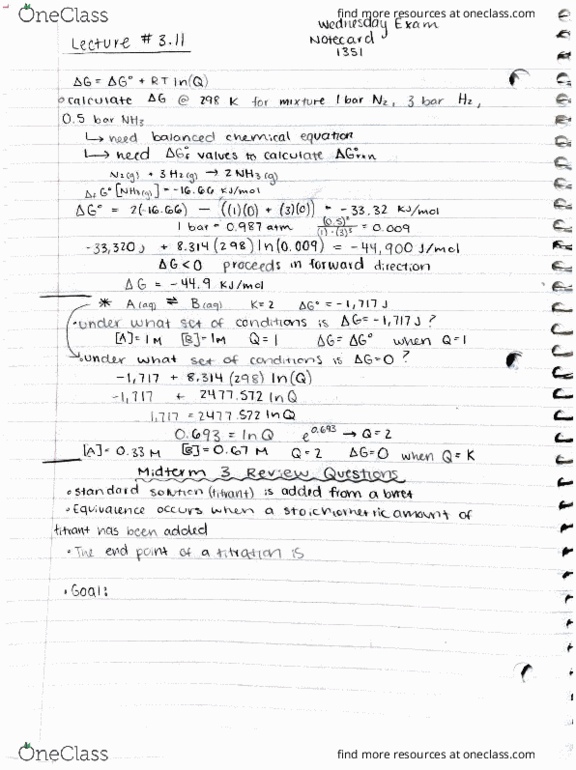 OneClass
find more resources at oneclass.com
Wednesday Exam
Lecture # 3.11
Notecard
1351
ΔG = ΔG° + RT ln(Q)
• calculate ΔG @ 298 K for mixture 1 bar N₂, 3 bar H₂,
0.5 bar NH₃
↳ need balanced chemical equation
↳ need ΔG°f values to calculate ΔG°rxn
N₂(g) + 3H₂(g) → 2NH₃(g)
ΔfG° [NH₃(g)] = -16.66 KJ/mol
ΔG° = 2(-16.66) - ((1)(0) + (3)(0)) = -33.32 KJ/mol
1 bar = 0.987 atm (0.5)²/(1)·(3)³ = 0.009
-33,320 J + 8.314 (298) ln(0.009) = -44,900 J/mol
ΔG<0 proceeds in forward direction
ΔG = -44.9 KJ/mol
* A(aq) ⇌ B(aq) K=2 ΔG° = -1,717 J
• under what set of conditions is ΔG = -1,717 J?
[A]=1M [B]=1M Q=1 ΔG = ΔG° when Q=1
• under what set of conditions is ΔG=0?
-1,717 + 8.314 (298) ln(Q)
-1,717 + 2477.572 lnQ
1,717 = 2477.572 lnQ
0.693 = lnQ e^0.693 → Q=2
[A]=0.33 M [B]=0.67 M Q=2 ΔG=0 when Q=K
Midterm 3 Review Questions
• standard solution (titrant) is added from a buret
• Equivalence occurs when a stoichiometric amount of
titrant has been added
• The end point of a titration is
• Goal:
OneClass
find more resources at oneclass.com